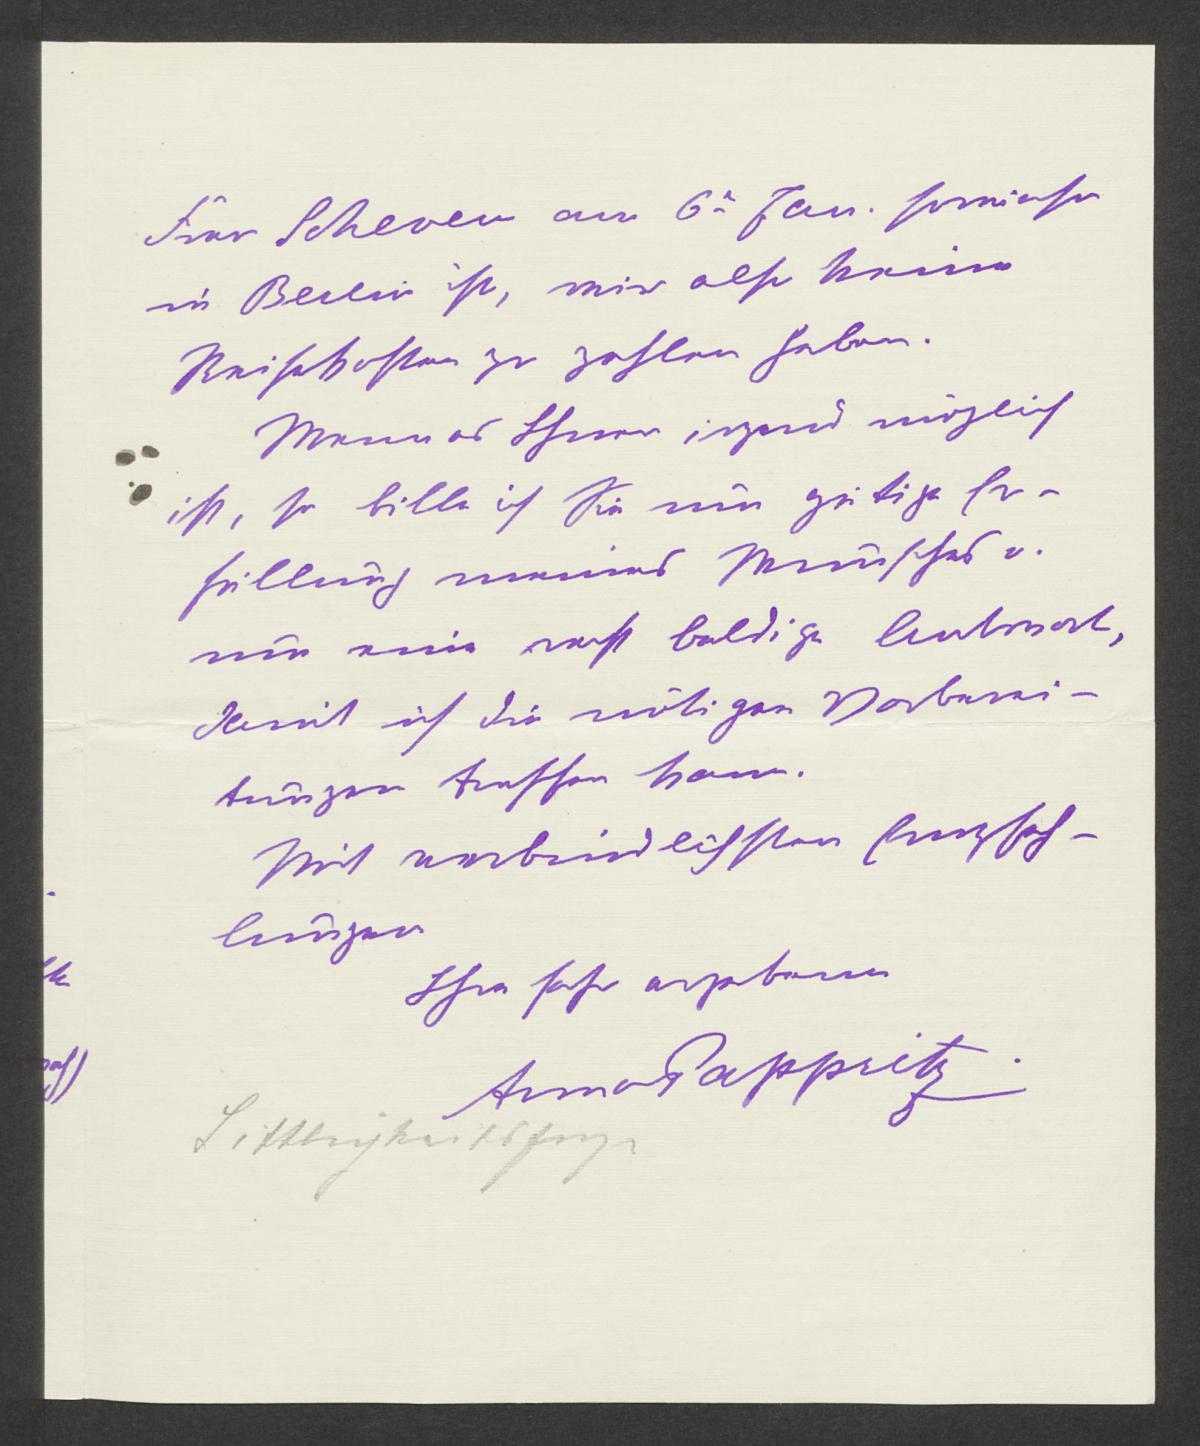 Frau Scheven am 6ⁿ Jan. sowieso
in Berlin ist, wir also keine
Reisekosten zu zahlen haben.
Wenn es Ihnen irgend möglich
ist, so bitte ich Sie um gütige Er-
füllung meines Wunsches u.
um eine recht baldige Antwort,
damit ich die nötigen Vorberei-
tungen treffen kann.
Mit verbindlichsten Empfeh-
lungen
Ihre sehr ergebene
Anna Pappritz.
Sittlichkeitsfrage